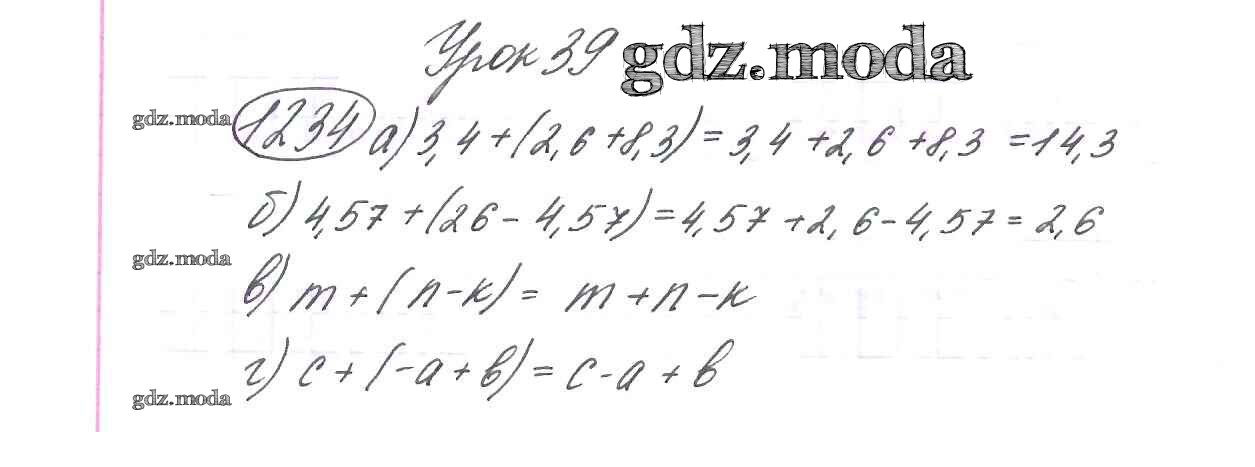 Урок 39 gdz.moda
gdz.moda 1234 а) 3,4 + (2,6 + 8,3) = 3,4 + 2,6 + 8,3 = 14,3
б) 4,57 + (26 - 4,57) = 4,57 + 2,6 - 4,57 = 2,6
gdz.moda
в) m + (n - к) = m + n - к
г) c + (-a + в) = c - a + в
gdz.moda